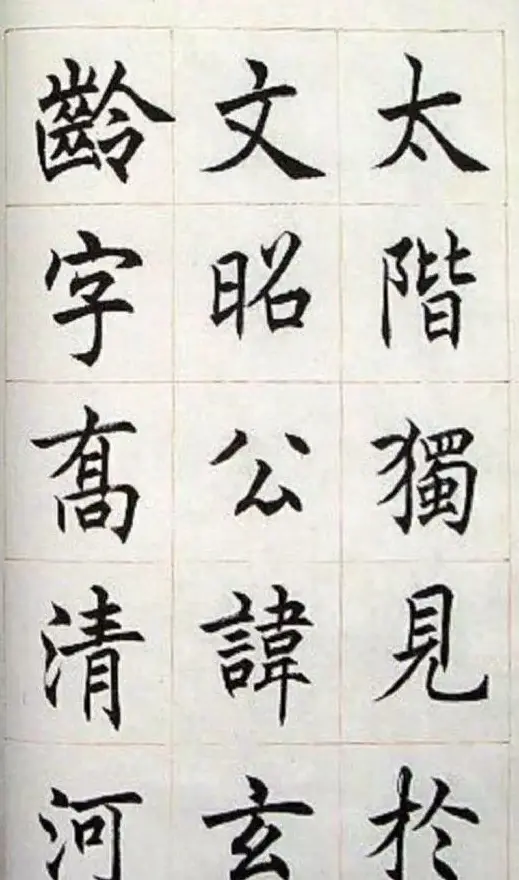 太階獨見於
文昭公諱玄
齡字髙清河